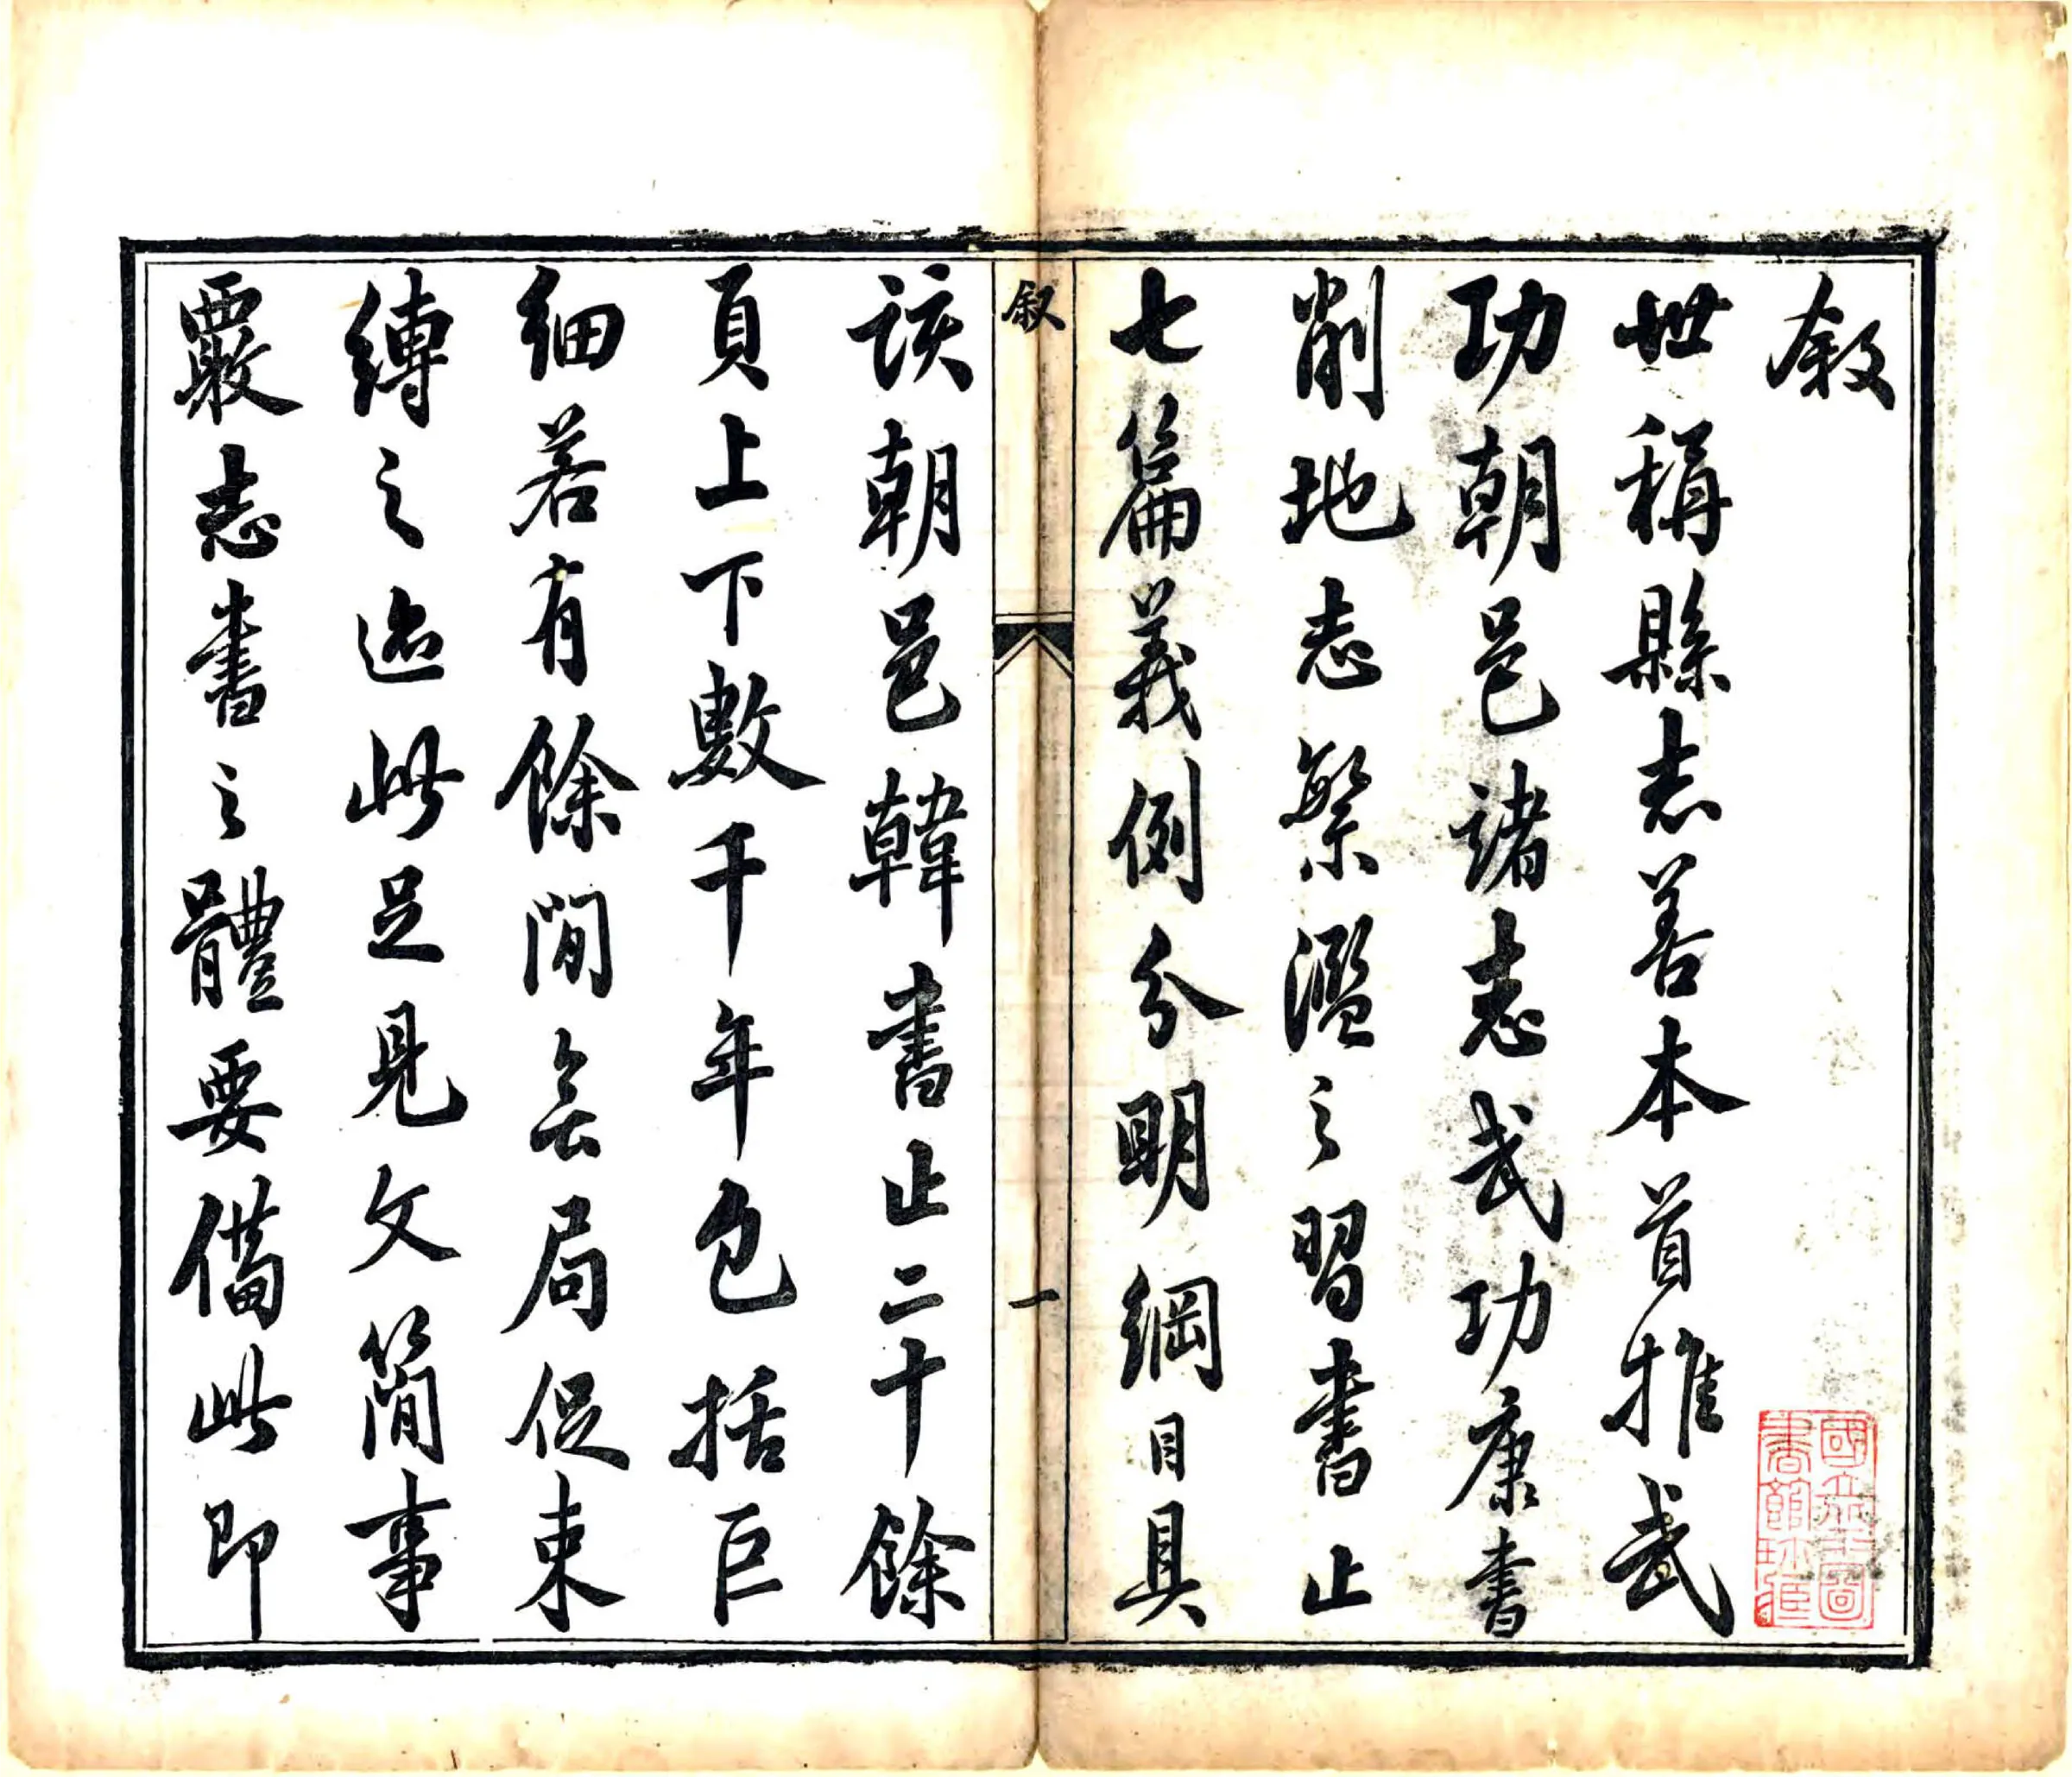 敘
世稱縣志善本首推武
功朝邑諸志武功康書
削地志繁濫之習書止
七篇義例分明綱目具
叙
一
該朝邑韓書止二十餘
頁上下數千年包括巨
細若有餘閒無局促束
縛之迹此足見文簡事
覈志書之體要備此即
國立北平圖
書館珍藏